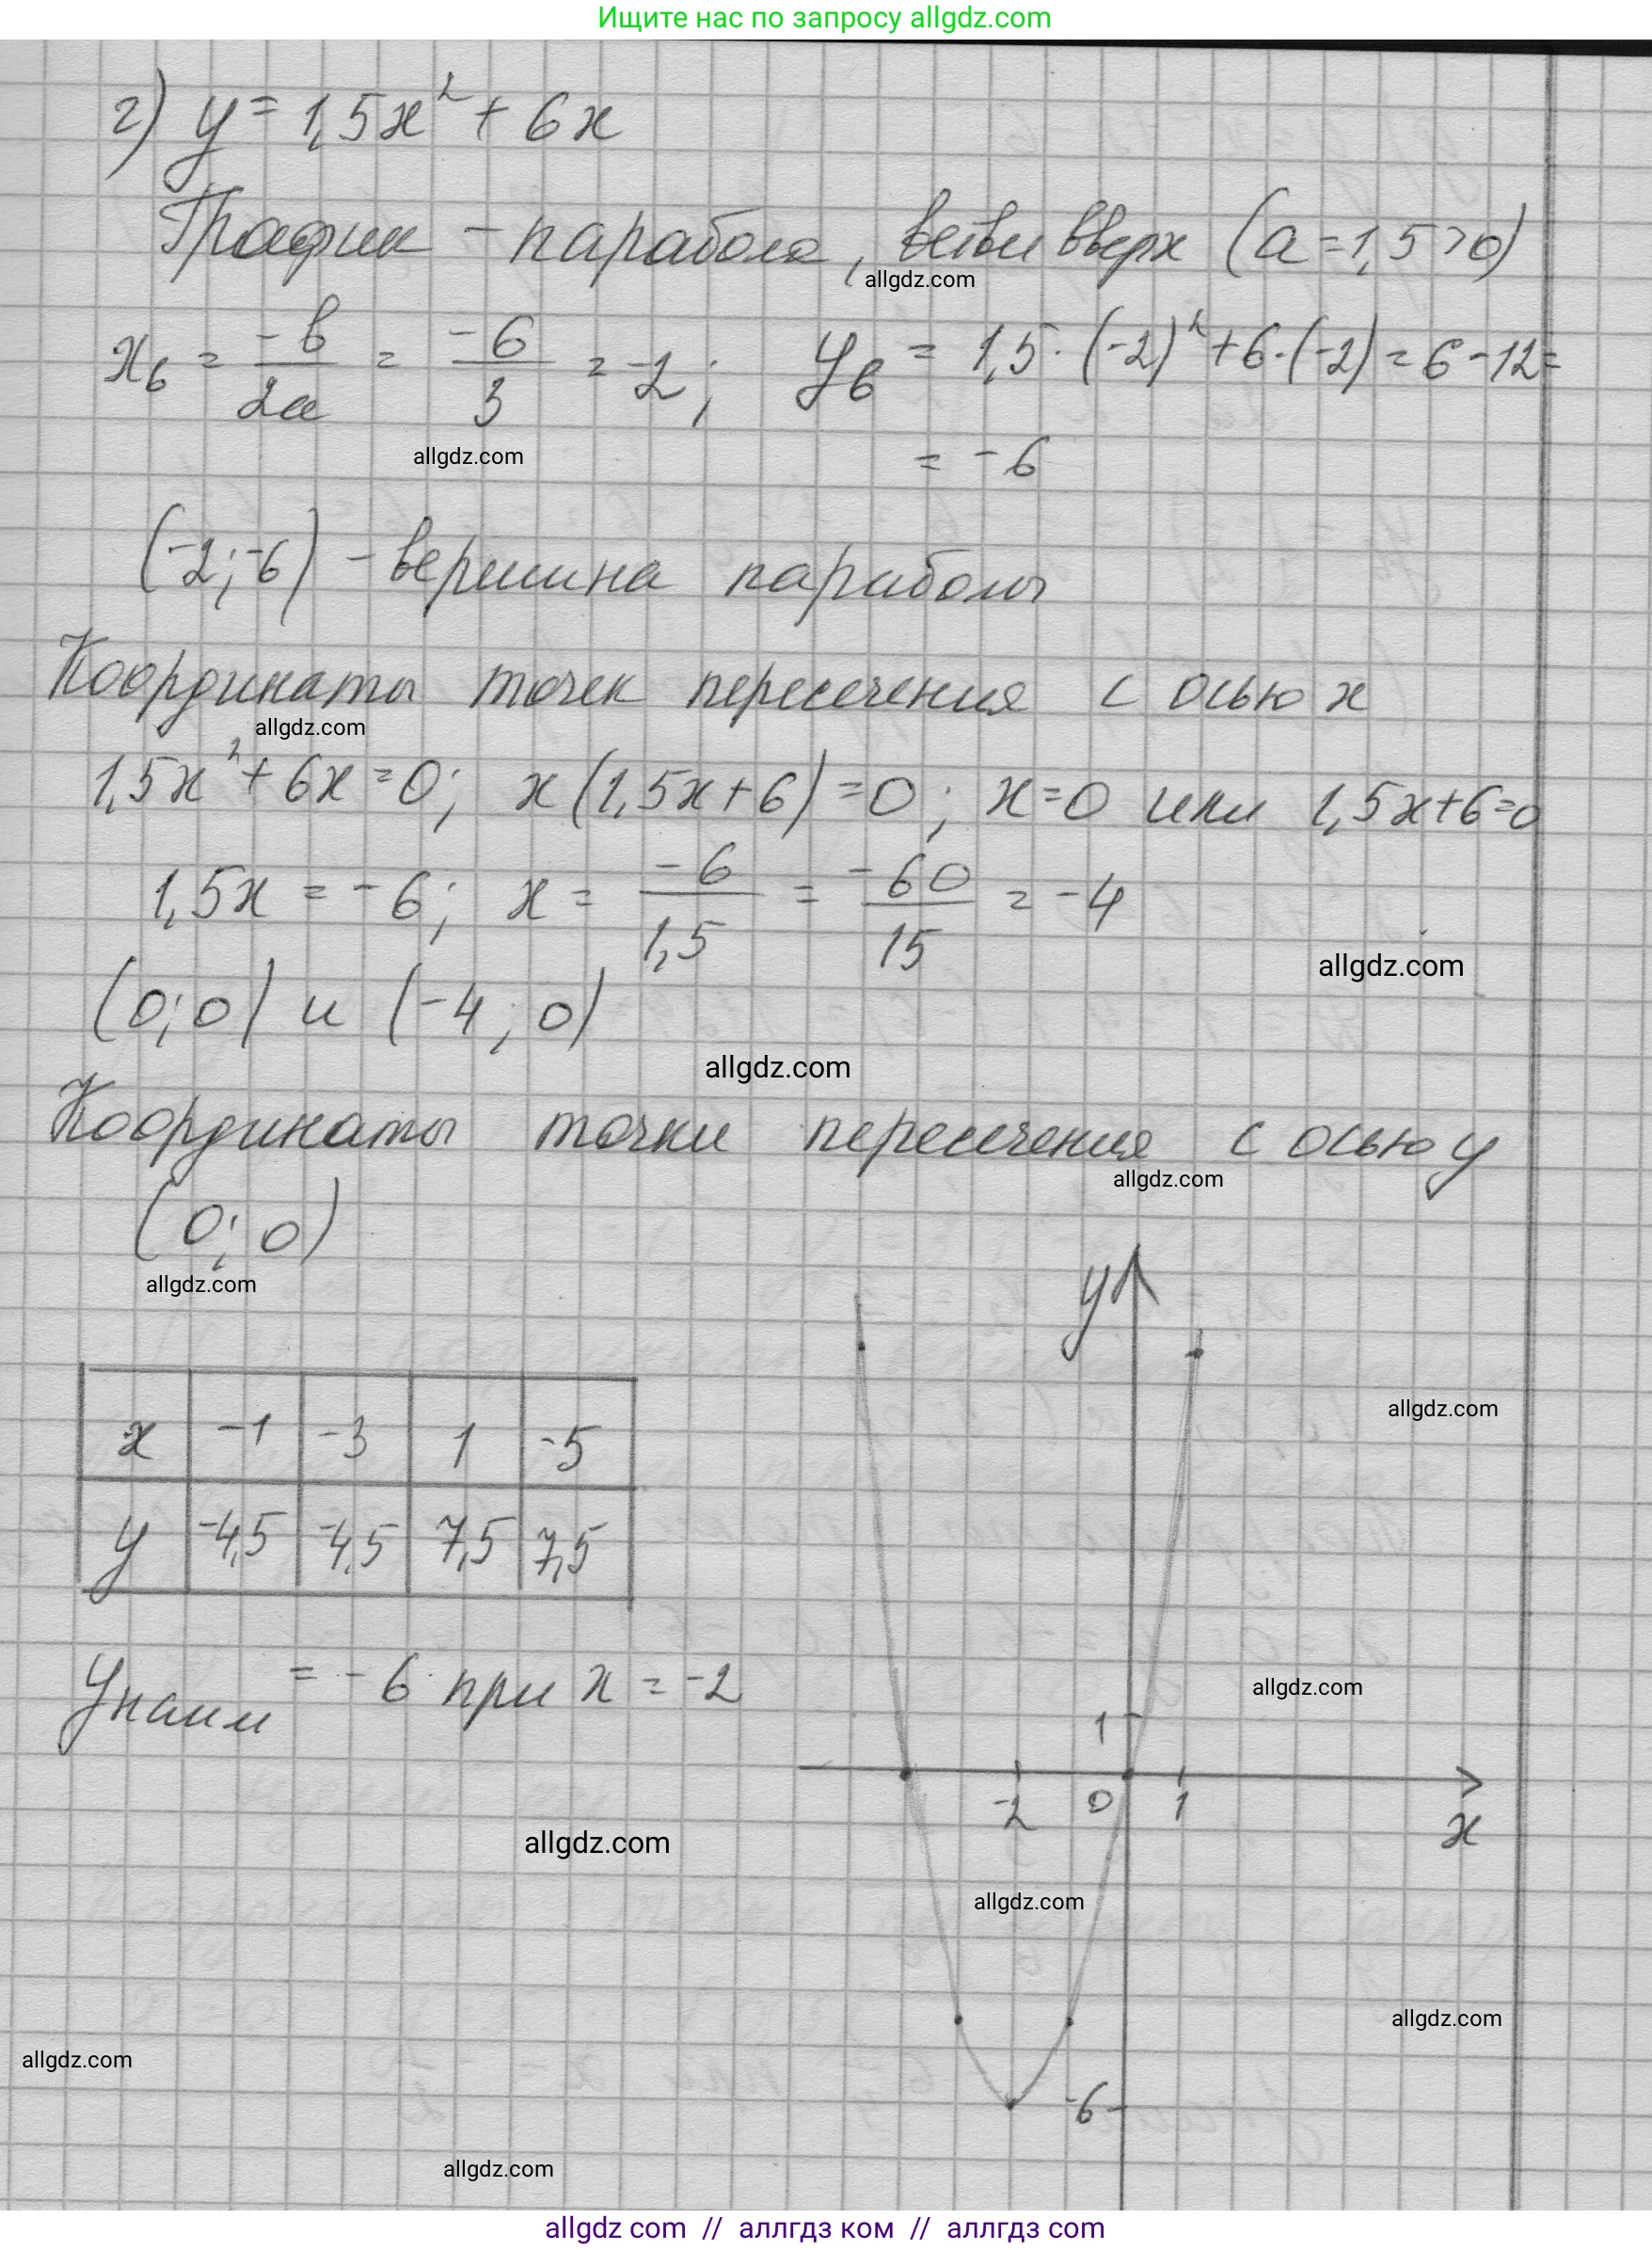 Ищите нас по запросу allgdz.com
г) y = 1,5x² + 6x
График - парабола, ветви вверх (a = 1,5 > 0)
allgdz.com
xв = -b/2a = -6/3 = -2; yв = 1,5 · (-2)² + 6 · (-2) = 6 - 12 =
allgdz.com
= -6
(-2; -6) - вершина параболы
Координаты точек пересечения с осью x
allgdz.com
1,5x² + 6x = 0; x(1,5x + 6) = 0; x = 0 или 1,5x + 6 = 0
1,5x = -6; x = -6/1,5 = -60/15 = -4
allgdz.com
(0; 0) и (-4; 0)
allgdz.com
Координаты точки пересечения с осью y
allgdz.com
(0; 0)
allgdz.com
y
allgdz.com
x -1 -3 1 -5
y -4,5 -4,5 7,5 7,5
yнаим = -6 при x = -2
allgdz.com
1
-2 0 1
x
allgdz.com
allgdz.com
allgdz.com
allgdz.com
-6
allgdz.com
allgdz com // аллгдз ком // аллгдз com